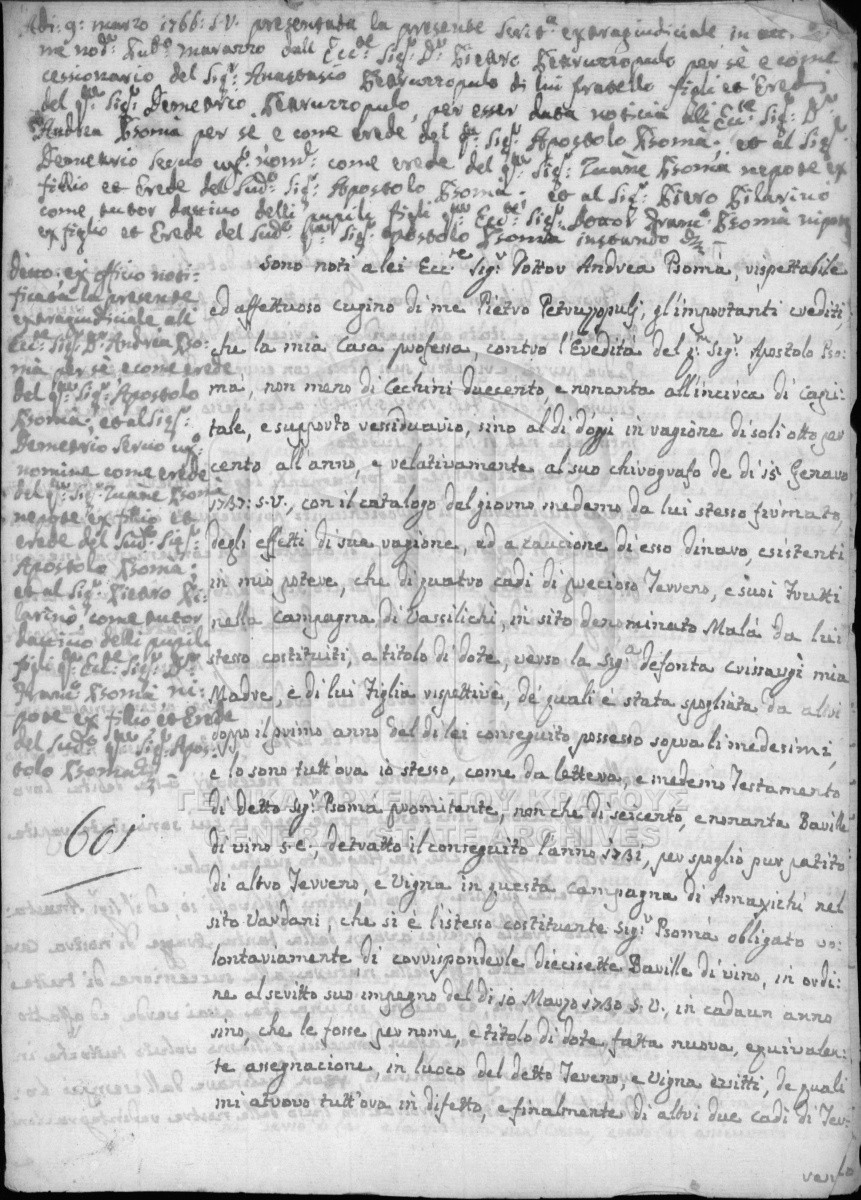 Adi: 9: marzo 1766: S.V. presentata la presente Scritª extragiudiciale in
me nodº Pubº marazzo dall' Eccte Sigr: Dr: Pietro Petruzzopulo per sè e come
cessionario del Sigr: Anastasio Petruzzopulo di lui fratello figli et Eredi
del qm Sigr Demetrio Petruzzopulo, per esser data noticia all' Eccte Sigr: Dr:
Andrea Psomà per sè e come erede del qm: Sigr Apostolo Psomà; et al Sigr
Demetrio Servo nomº come erede del qm: Sigr: Zuane Psomà nepote ex
fillio et Erede del Sudº: Sigr: Apostolo Psomà; et al Sigr: Piero Pilarino
come tutor dattivo delli pupili figli qm Eccte Sigr: Dotor Francº: Psomà nipote
ex figlio et Erede del Sudº qm Sigr Apostolo Psomà instando
Sono noti a lei Eccte Sigr: Dottor Andrea Psomà, rispettabile
ed affettuoso cugino di me Pietro Petruzzopulj, gl'importanti crediti,
che la mia Casa professa, contro l'Eredità del qm Sigr: Apostolo Pso-
ma, non meno di Cechini duecento, e nonanta all'incirca di capi-
tale, e supposto ressiduario, sino al di d'oggi in ragione di soli otto per
cento all'anno, e relativamente al suo chirografo de di 15 Genaro
1737: S.V., con il catalogo del giorno medemo da lui stesso firmato,
degli effetti di sua ragione, ad a cauzione di esso dinaro, esistenti
in mio potere, che di quatro cadi di precioso Terreno, e suoi frutti
nella campagna di Vassilichi, in sito denominato Malà da lui
stesso costituiti, a titolo di dote, verso la Sigª defonta Crissaugi mia
Madre, e di lui Figlia rispettive, de quali è stata spogliata da altri
doppo il primo anno del di lei conseguito possesso sopra li medesimi,
e lo sono tutt'ora iò stesso, come da lettera, e medemo Testamento
di detto Sigr: Psoma promitente, non che di seicento, e nonanta Barille
di vino S.E., detratto il conseguito l'anno 1731, per spoglio pur patito
di altro Terreno, e Vigna in questa campagna di Amaxichi nel
sito Vardani, che si è l'istesso costituente Sigr: Psomà obligato vo-
lontariamente di corrisponderle diecisette Barille di vino, in ordi-
ne al scritto suo impegno del di 10 Marzo 1730 S.V., in cadaun anno
sino, che le fosse per nome, e titolo di dote, fatta nuova, equivalen-
te assegnacione, in luoco del detto Tereno, e Vigna dritti, de quali
mi atrovo tutt'ora in difetto, e finalmente di altri due cadi di Ter-
reno
detto; ex officio noti-
ficata la presente
extragiudiciale all'
Eccte Sigr: Dr: Andrea Pso-
mà per sè e come erede
del qm: Sigr: Apostolo
Psomà; et al Sigr:
Demetrio Servo
nomine come erede
del qm: Sigr: Zuane Psomà
nepote ex fillio et
erede del Sudº: Sigr:
Apostolo Psomà;
et al Sigr: Pietro Pi-
larinò, come tutor
dattivo delli pupili
figli qm: Eccte Sigr: Dr:
Francº: Psomà ni-
pote ex fillio, et Erede
del Sudº qm: Sigr: Apos-
tolo Psomà
601
ΓΕΝΙΚΑ ΑΡΧΕΙΑ ΤΟΥ ΚΡΑΤΟΥΣ
GENERAL STATE ARCHIVES